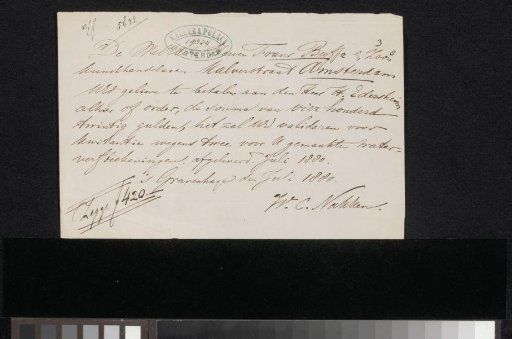 5632
AMSTERDAM
De Weled Heeren Frans Buffa & Zoon
Kunsthandelaren Kalverstraat Amsterdam
UEd gelieve te betalen aan den Heer H. Edersheim
alhier of order, de somma van vier honderd
twintig gulden, het zal UEd valideren voor
kwitantie wegens twee voor U gemaakte water-
verfteekeningen, afgeleverd Juli 1880.
's Gravenhage den Juli 1880.
Zegge f 420.-
W. C. Nakken.